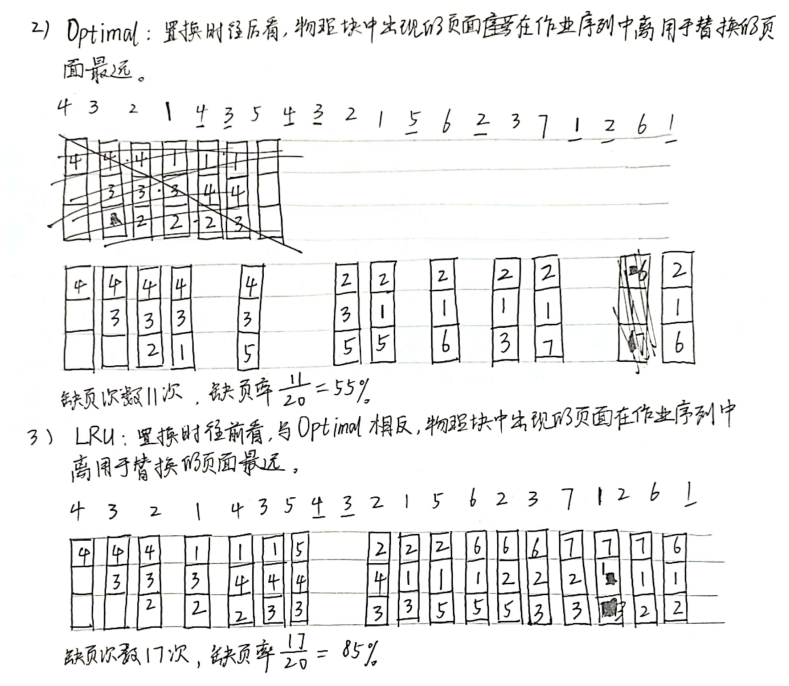 2) Optimal：置换时往后看，物理块中出现的页面在作业序列中离用于替换的页
面最远。
4 3 2 1 4 3 5 4 3 2 1 5 6 2 3 7 1 2 6 1
4 4 4 1 1 1
3 3 3 4 4
2 2 2 3
4 4 4 4 4 2 2 2 2 2 2
3 3 3 3 3 1 1 1 1 1
2 1 5 5 5 6 3 7 6
缺页次数11次，缺页率 11/20 = 55%
3) LRU：置换时往前看，与Optimal相反，物理块中出现的页面在作业序列中
离用于替换的页面最远。
4 3 2 1 4 3 5 4 3 2 1 5 6 2 3 7 1 2 6 1
4 4 4 1 1 1 5 2 2 2 6 6 6 7 7 7 6
3 3 3 4 4 4 4 1 1 1 2 2 2 1 1 1
2 2 2 3 3 3 3 5 5 5 3 3 3 2 2
缺页次数17次，缺页率 17/20 = 85%